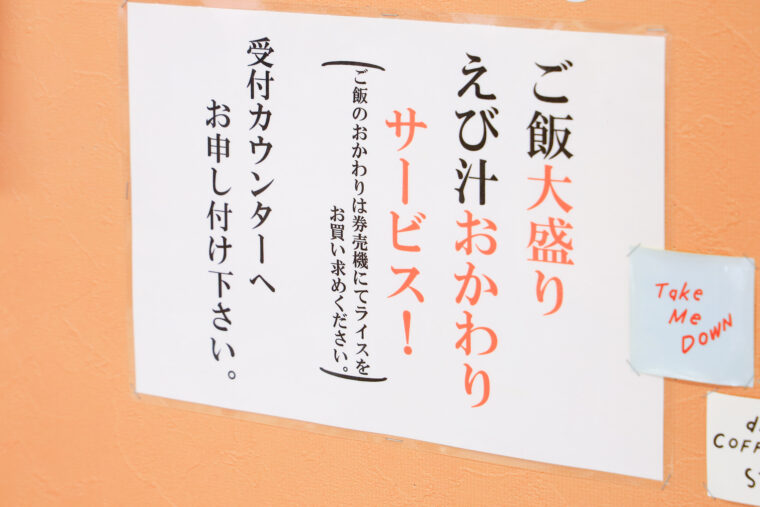 ご飯大盛り
えび汁おかわり
サービス！
(ご飯のおかわりは券売機にてライスを
お買い求めください。)
受付カウンターへ
お申し付け下さい。
Take
Me
DOWN